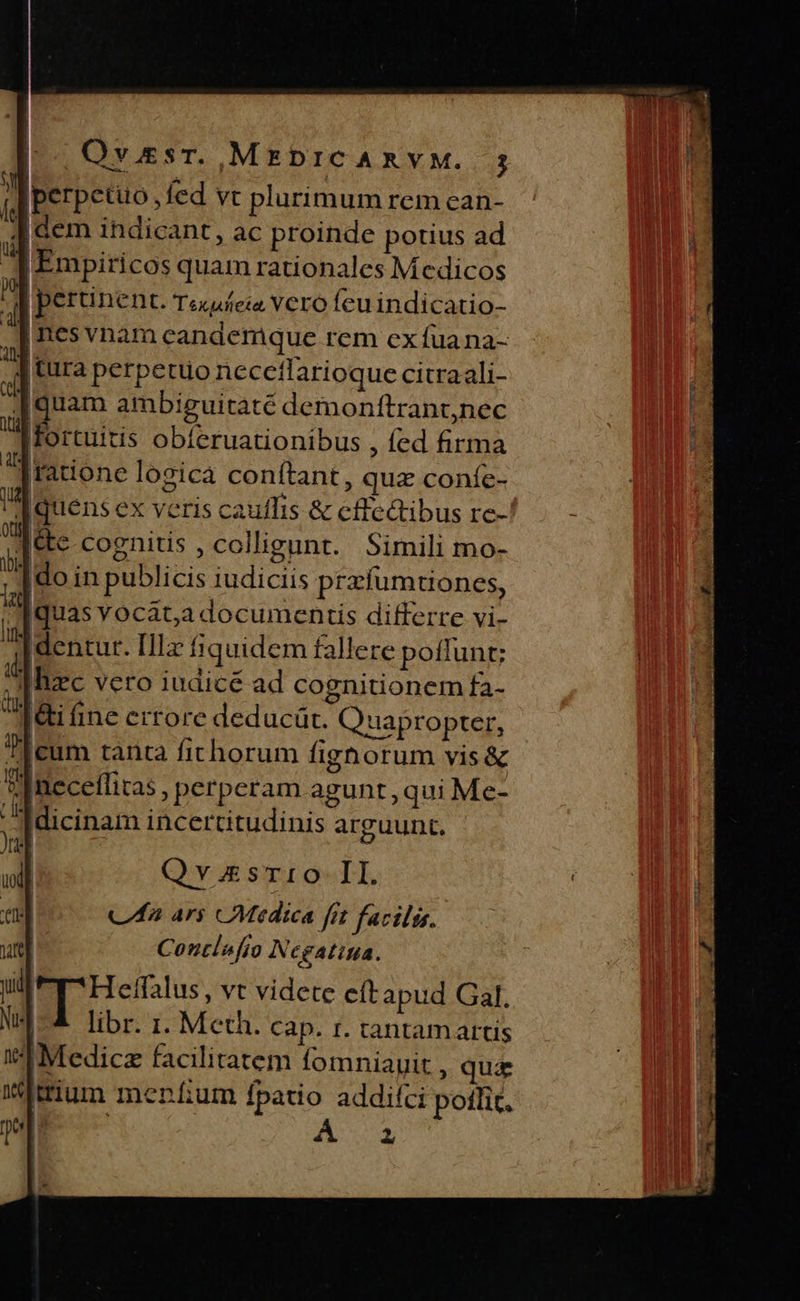 QVÆST. MEDICARVM. 3
perpetuo, ſed vt plurimum rem ean-
dem indicant, ac proinde potius ad
Empiricos quam rationales Medicos
pertinent. Τεκμήρια vero ſeu indicatio-
nes vnam eandemque rem ex ſua na-
tura perpetuo neceſſarioque citra ali-
quam ambiguitaté demonſtrant, nec
fortuitis obſeruationibus, ſed firma
ratione logica conſtant, quæ conſe-
quens ex veris cauſſis & effectibus re-
cte cognitis, colligunt. Simili mo-
do in publicis iudiciis præſumtiones,
quas vocāt, a documentis differre vi-
dentur. Illæ ſiquidem fallere poſſunt;
hæc vero iudicé ad cognitionem fa-
cti ſine errore deducūt. Quapropter,
cum tanta ſit horum ſignorum vis &
neceſſitas, perperam agunt, qui Me-
dicinam incertitudinis arguunt.
QVÆSTIO II.
An ars Medica ſit facilis.
Concluſio Negatiua.
THeſſalus, vt videre eſt apud Gal.
libr. 1. Meth. cap. 1. tantam artis
Medicæ facilitatem ſomniauit, quæ
trium menſium ſpatio addiſci poſſit.
A 2